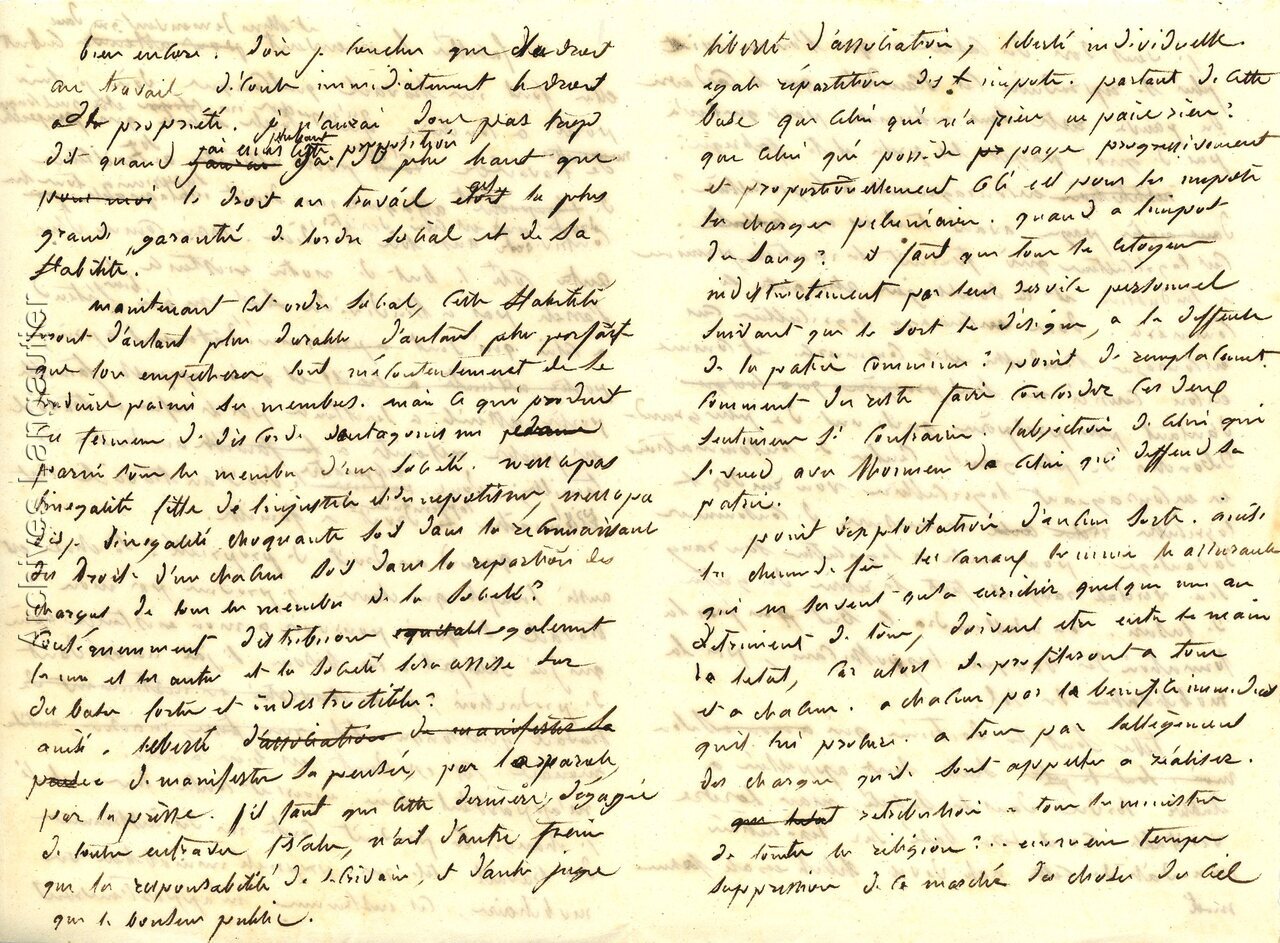 bien encore. d'où je conclus que le droit
au travail découle immédiatement le droit
a la propriété. je n'aurai donc pas trop
dit quand j'ai emis cette proposition plus haut que
le droit au travail est la plus
grande garantie de lordre social et de sa
stabilité.
maintenant cet ordre social, cette stabilité
seront d'autant plus durable d'autant plus parfaite
que lon empechera tout mécontentement de se
produire parmi ses membres. mais ce qui produit
ce ferment de discorde dantagonisme
parmi tous les membres d'une société. nest ce pas
linegalité fille de linjustice et du nepotisme, nest ce pas
linegalité choquante soit dans la reconnaissance
des droits d'un chacun soit dans la repartion des
charges de tous les membres de la société?
distribuons egalement
les uns et les autres et la société sera assise sur
des bases fortes et indestructibles?
ainsi. liberté d'association de manifester sa
pensée de manifester sa pensée, par la parole,
par la presse. il faut que cette dernière, dégagée
de toutes entraves fiscales, n'ait d'autre frein
que la responsabilité de lecrivain, et d'autre juge
que le bonheur public.
liberté d'association, liberté individuelle.
egale répartition des impots. partant de cette
base que celui qui n'a rien ne paie rien?
que celui qui possède paye progressivement
et proportionnellement celà est pour les impots
les charges pécuniaires. quand a limpot
du sang? il faut que tous les citoyens
indistinctement par leur service personnel
suivant que le sort le désigne, a la deffense
de la patrie commune? point de remplacement
comment du reste faire concorder ces deux
sentimens si contraires. labjection de celui qui
se vend avec lhonneur de celui qui deffend sa
patrie.
point dexploitation d'aucune sorte. ainsi
les chemins de fer les canaux les mines les assurances
qui ne servent qu'a enrichir quelques uns au
détriment de tous, doivent etre entre les mains
de letat, car alors ils profiteront a tous
et a chacun. a chacun par le benefice immediat
quil lui procure. a tous par lallégement
des charges quils sont appelés a réaliser.
retribution a tous les ministres
de toutes les religions? .. en meme temps
suppression de ce marché des choses du ciel
Archives Langaurier